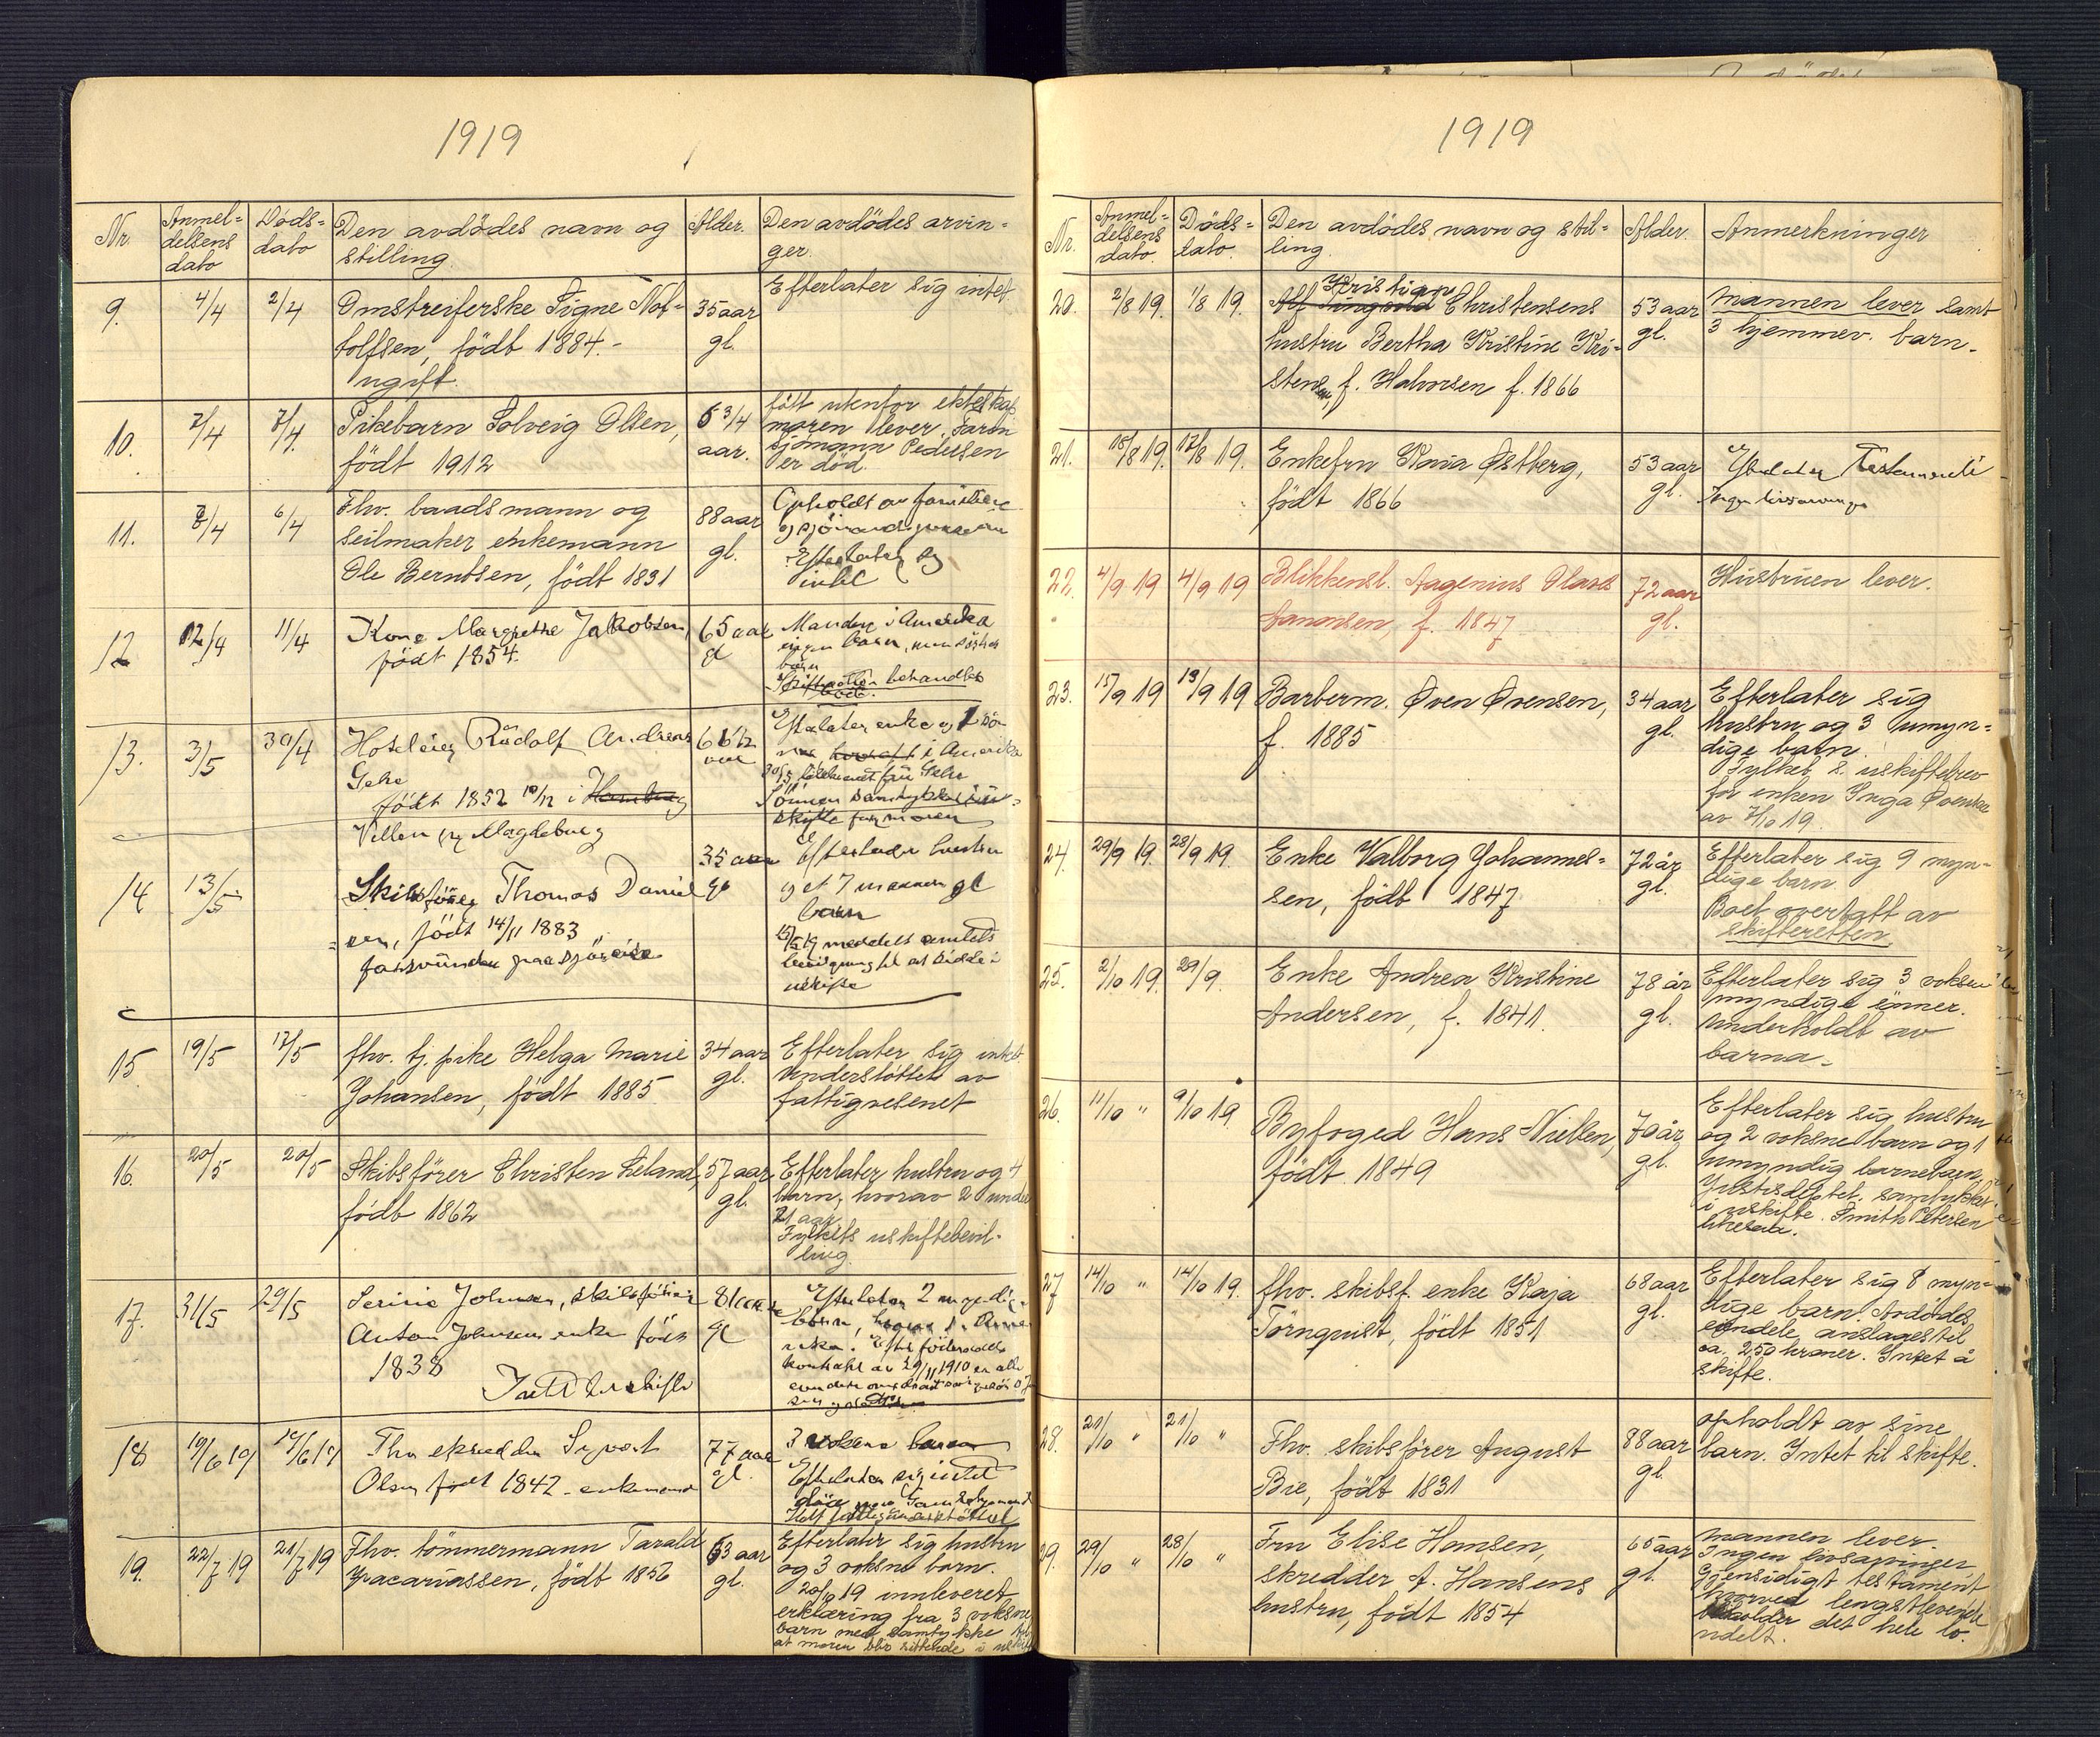 1919
Nr. Anmel= delsens dato Døds= dato Den avdödes navn og stilling. Alder. Den avdödes arvin= ger.
9. 4/4 2/4 Omstreiferske Signe Not= 35 aar Efterlater sig intet.
tolfsen, født 1884.- gl.
ugift.
10. 7/4 7/4 Pikebarn Solveig Olsen, 6 3/4 født utenfor ekteskap
født 1912 aar. moren lever. Faren
sjømann Pedersen
er død.
11. 8/4 6/4 Fhv. baadsmann og 88 aar Opholdt av familien
seilmaker enkemann gl. Efterlater sig
Ole Berntsen, født 1831 intet
12 12/4 11/4 Kone Margrethe Jakobsen, 65 aar Manden i Amerika
født 1854. gl ingen barn, men
Skifteretten behandler
13. 3/5 30/4 Hoteleier Rudolf Andreas 66 1/2 Efterlater enke og
Gehe i Amerika
født 1852 10/12 i Hamburg fru Gehe
Magdeburg
14 13/5 Skibsfører Thomas Daniel 35 aar Efterlater hustru
sen, født 14/11 1883 gl og et 7 maaneder gl
forsvunden paa sjøreise barn
meddelt amtets
bevilgning til at sidde i
uskifte
15. 19/5 17/5 fhv. tj. pike Helga Marie 34 aar Efterlater sig intet
Johansen, født 1885 gl. Understöttet av
fattigvesenet
16. 20/5 20/5 Skibsförer Christen Leland, 57 aar Efterlater hustru og 4
födt 1862 gl. barn, hvorav 2 under
21 aar.
Fylkets uskiftebevil-
ling.
17. 31/5 29/5 Serine Johnsen, skibsfører 81 aar Efterlater 2 myndige
Anton Johnsens enke født gl barn,
1838 kontrakt av 29/11 1910 er alle
Intet til skifte
18 19/6 19 17/6 19 Fhv skredder Syvert 77 aar 3 voksne barn
Olsen født 1842 - enkemand gl. Efterlater sig intet
døde paa Gamlehjemmet
19. 22/7 19 21/7 19 Fhv. tömmermann Tarald 63 aar Efterlater sig hustru
Zacariassen, födt 1856 gl. og 3 voksne barn.
20/10 19 innleveret
erklæring fra 3 voksne
barn med samtykke til
at moren blir sittende i uskifte
1919
Nr. Anmel= delsens dato. Døds= dato. Den avdödes navn og stil= ling. Alder. Anmerkninger
20. 2/8 19. 1/8 19. Kristian
Alf Ingvald Christensens 53 aar Mannen lever samt
hustru Bertha Kristine Kri= gl. 3 hjemmev. barn.
stensen, f. Halvorsen f. 1866
21. 18/8 19. 17/8 19. Enkefru Kaia Østberg, 53 aar Efterlater Testamente
født 1866 gl. Ingen livsarvinger
22. 4/9 19 4/9 19 Blikkensl. Aagenius Olaves 72 aar Hustruen lever.
Aanonsen, f. 1847 gl.
23. 15/9 19 13/9 19 Barberm. Øven Øvensen, 34 aar Efterlater sig
f. 1885 gl. hustru og 3 umyn=
dige barn.
Fylket s. uskiftebrev
for enken Inga Øvensen
av 7/10 19.
24. 29/9 19. 28/9 19. Enke Valborg Johannes= 72 år Efterlater sig 9 myn=
sen, födt 1847 gl. dige barn
Boet overtatt av
skifteretten.
25. 2/10 19. 29/9. Enke Andrea Kristine 78 år Efterlater sig 3 voksne
Andersen, f. 1841. gl. myndige sönner.
Underholdt av
barna.
26. 11/10 " 9/10 19. Byfoged Hans Nielsen, 70 år Efterlater sig hustru
født 1849 gl. og 2 voksne barn og 1
umyndig barnebarn
Justisdeptet. samtykke
i uskifte. Smith Petersen
likesaa.
27 14/10 " 14/10 19. fhv. skibsf. enke Kaja 68 aar Efterlater sig 8 myn=
Törnquist, født 1851 gl. dige barn. Avdödes
eiendele anslages til
ca. 250 kroner. Intet å
skifte.
28. 21/10 " 21/10 " Fhv. skibsfører August 88 aar opholdt av sine
Bie, födt 1831 gl. barn. Intet til skifte.
29. 29/10 " 28/10 " Fru Elise Hansen, 65 aar Mannen lever.
skredder A. Hansens gl. Ingen livsarvinger
hustru, födt 1854 Gjensidigt testament
hvorved lengstlevende
beholder det hele bo
udelt.